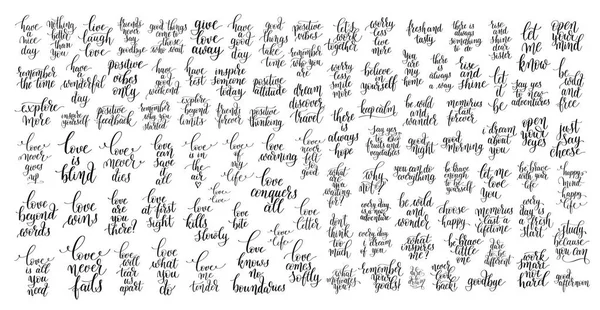 have a nice day
nothing better than you
live laugh love
friends never say goodbye
good things come to those who wait
give love away
have a good day
good things take time
positive vibes
let's work together
worry less live more
fresh and tasty
there is always something to do
rise and shine dear sister
let me know
open your mind
remember the time
have a wonderful day
positive vibes only
have a good weekend
inspire someone today
positive attitude
remember who you are
worry less smile more
believe in yourself
you are my home
there is always a way
rise and shine
let it be
say yes to new adventures
be wild and free
explore more
inspire yourself
positive feedback
remember why you started
explore beyond limits
friends forever
positive thinking
dream discover travel
keep calm
be wild and wander
memories last forever
open your eyes
just say cheese
love never gives up
love is blind
love never dies
love can save it all
love is in the air
love of my life
love warning
there is always hope
say yes to fruits and vegetables
good night
good morning
i dream about you
love conquers all
what are you waiting for?
why not?
you can do everything
be brave enough to be yourself
let me love you
be brave with your life
happy mind happy life
love beyond words
love wins
love are you there?
love at first sight
love kills slowly
love bite
love letter
every day is a new adventure
choose happy
memories last a lifetime
every day is a fresh start
don't think too much
every day i dream of you
what inspires me?
be brave little one
dare to be different
study because you can
love is all you need
love never fails
love will tear us apart
love what you do
love me tender
love knows no boundaries
love life
love comes softly
what motivates you?
remember your goals
never look back!
goodbye
work smart not hard
good afternoon